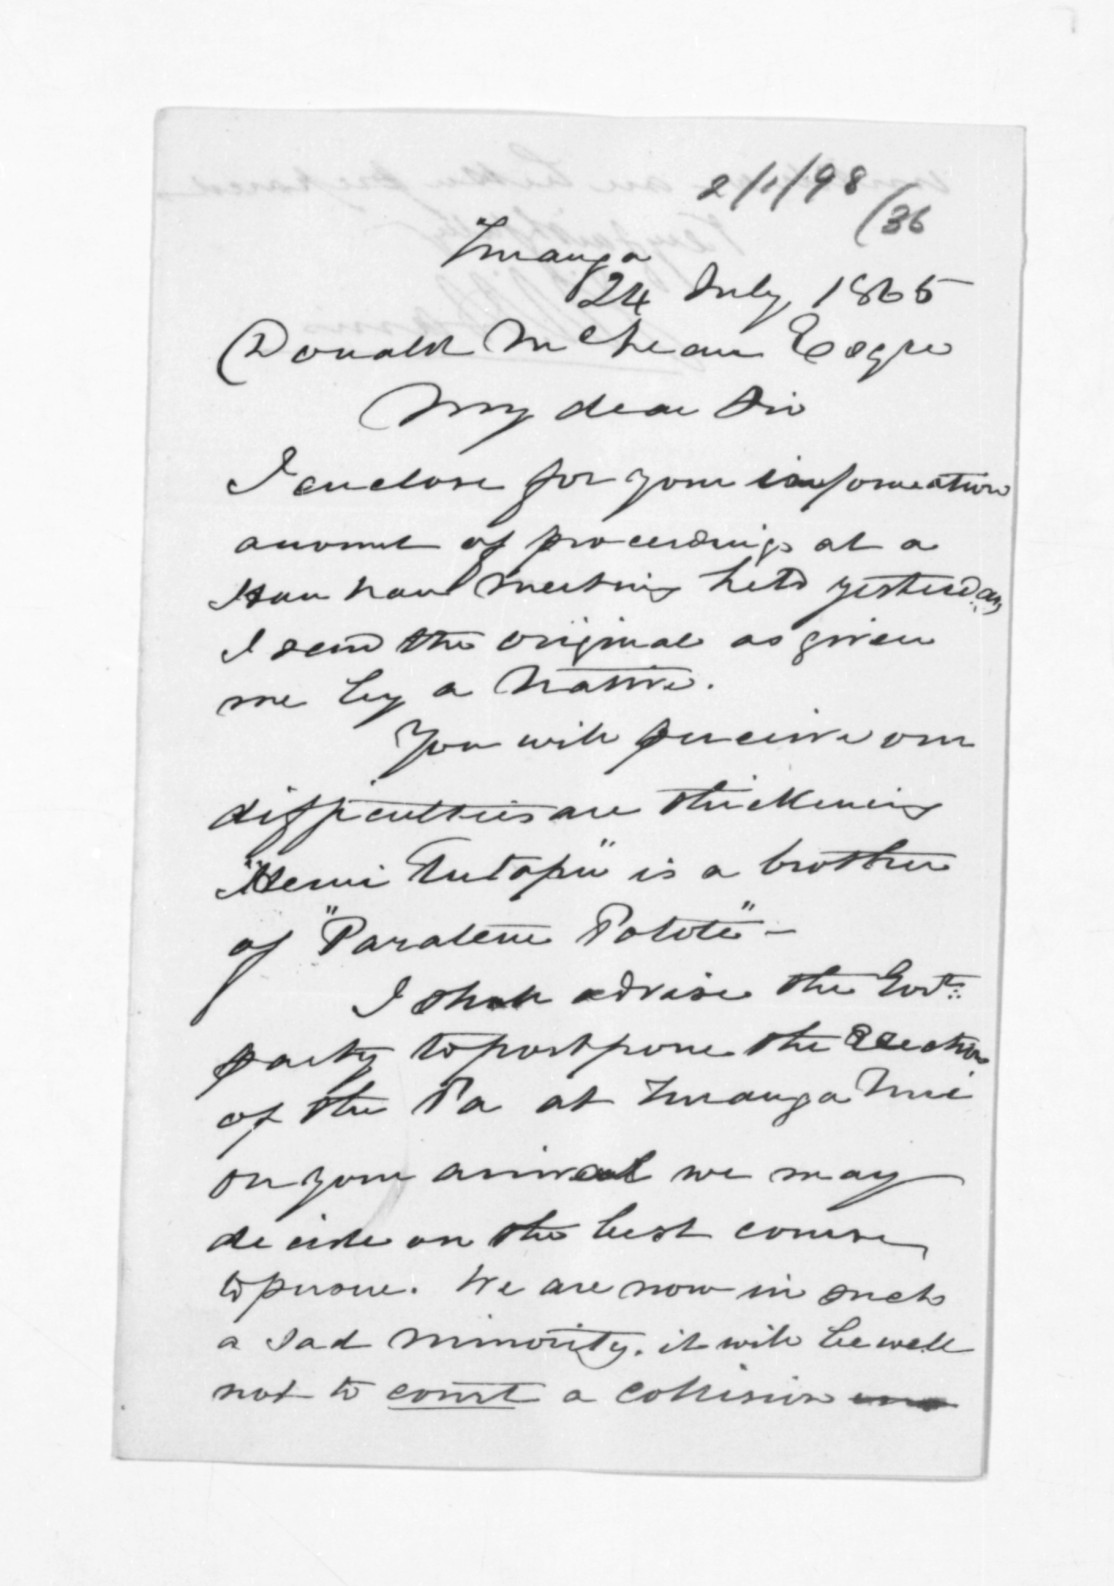 2/1/98
/36
Turanga
24 July 1865
Donald McLean Esqre
My dear Sir
I enclose for your information
account of proceedings at a
Hau hau meeting held yesterday
I send the original as given
me by a native.
You will perceive our
difficulties are thickening
"Hemi Tutapu" is a brother
of "Paratene Pototi" -
I shall advise the Govt.
party to postpone the erection
of the Pa at Turanga Nui
on your arrival we may
decide on the best course
to pursue. We are now in such
a sad minority. it will be well
not to court a collision